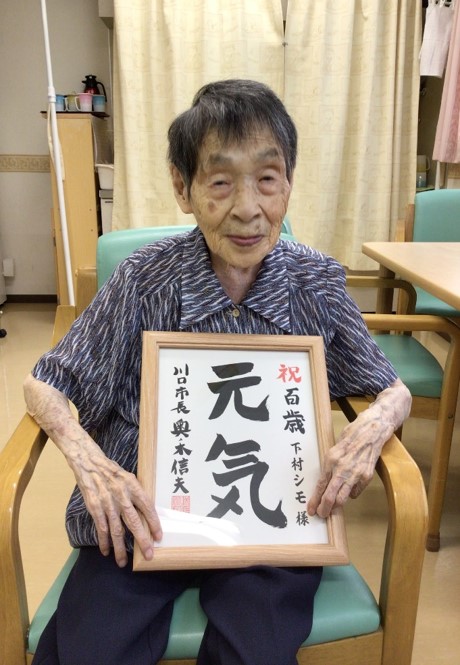 祝百歳 下村シモ様
元気
川口市長 奥ノ木信夫